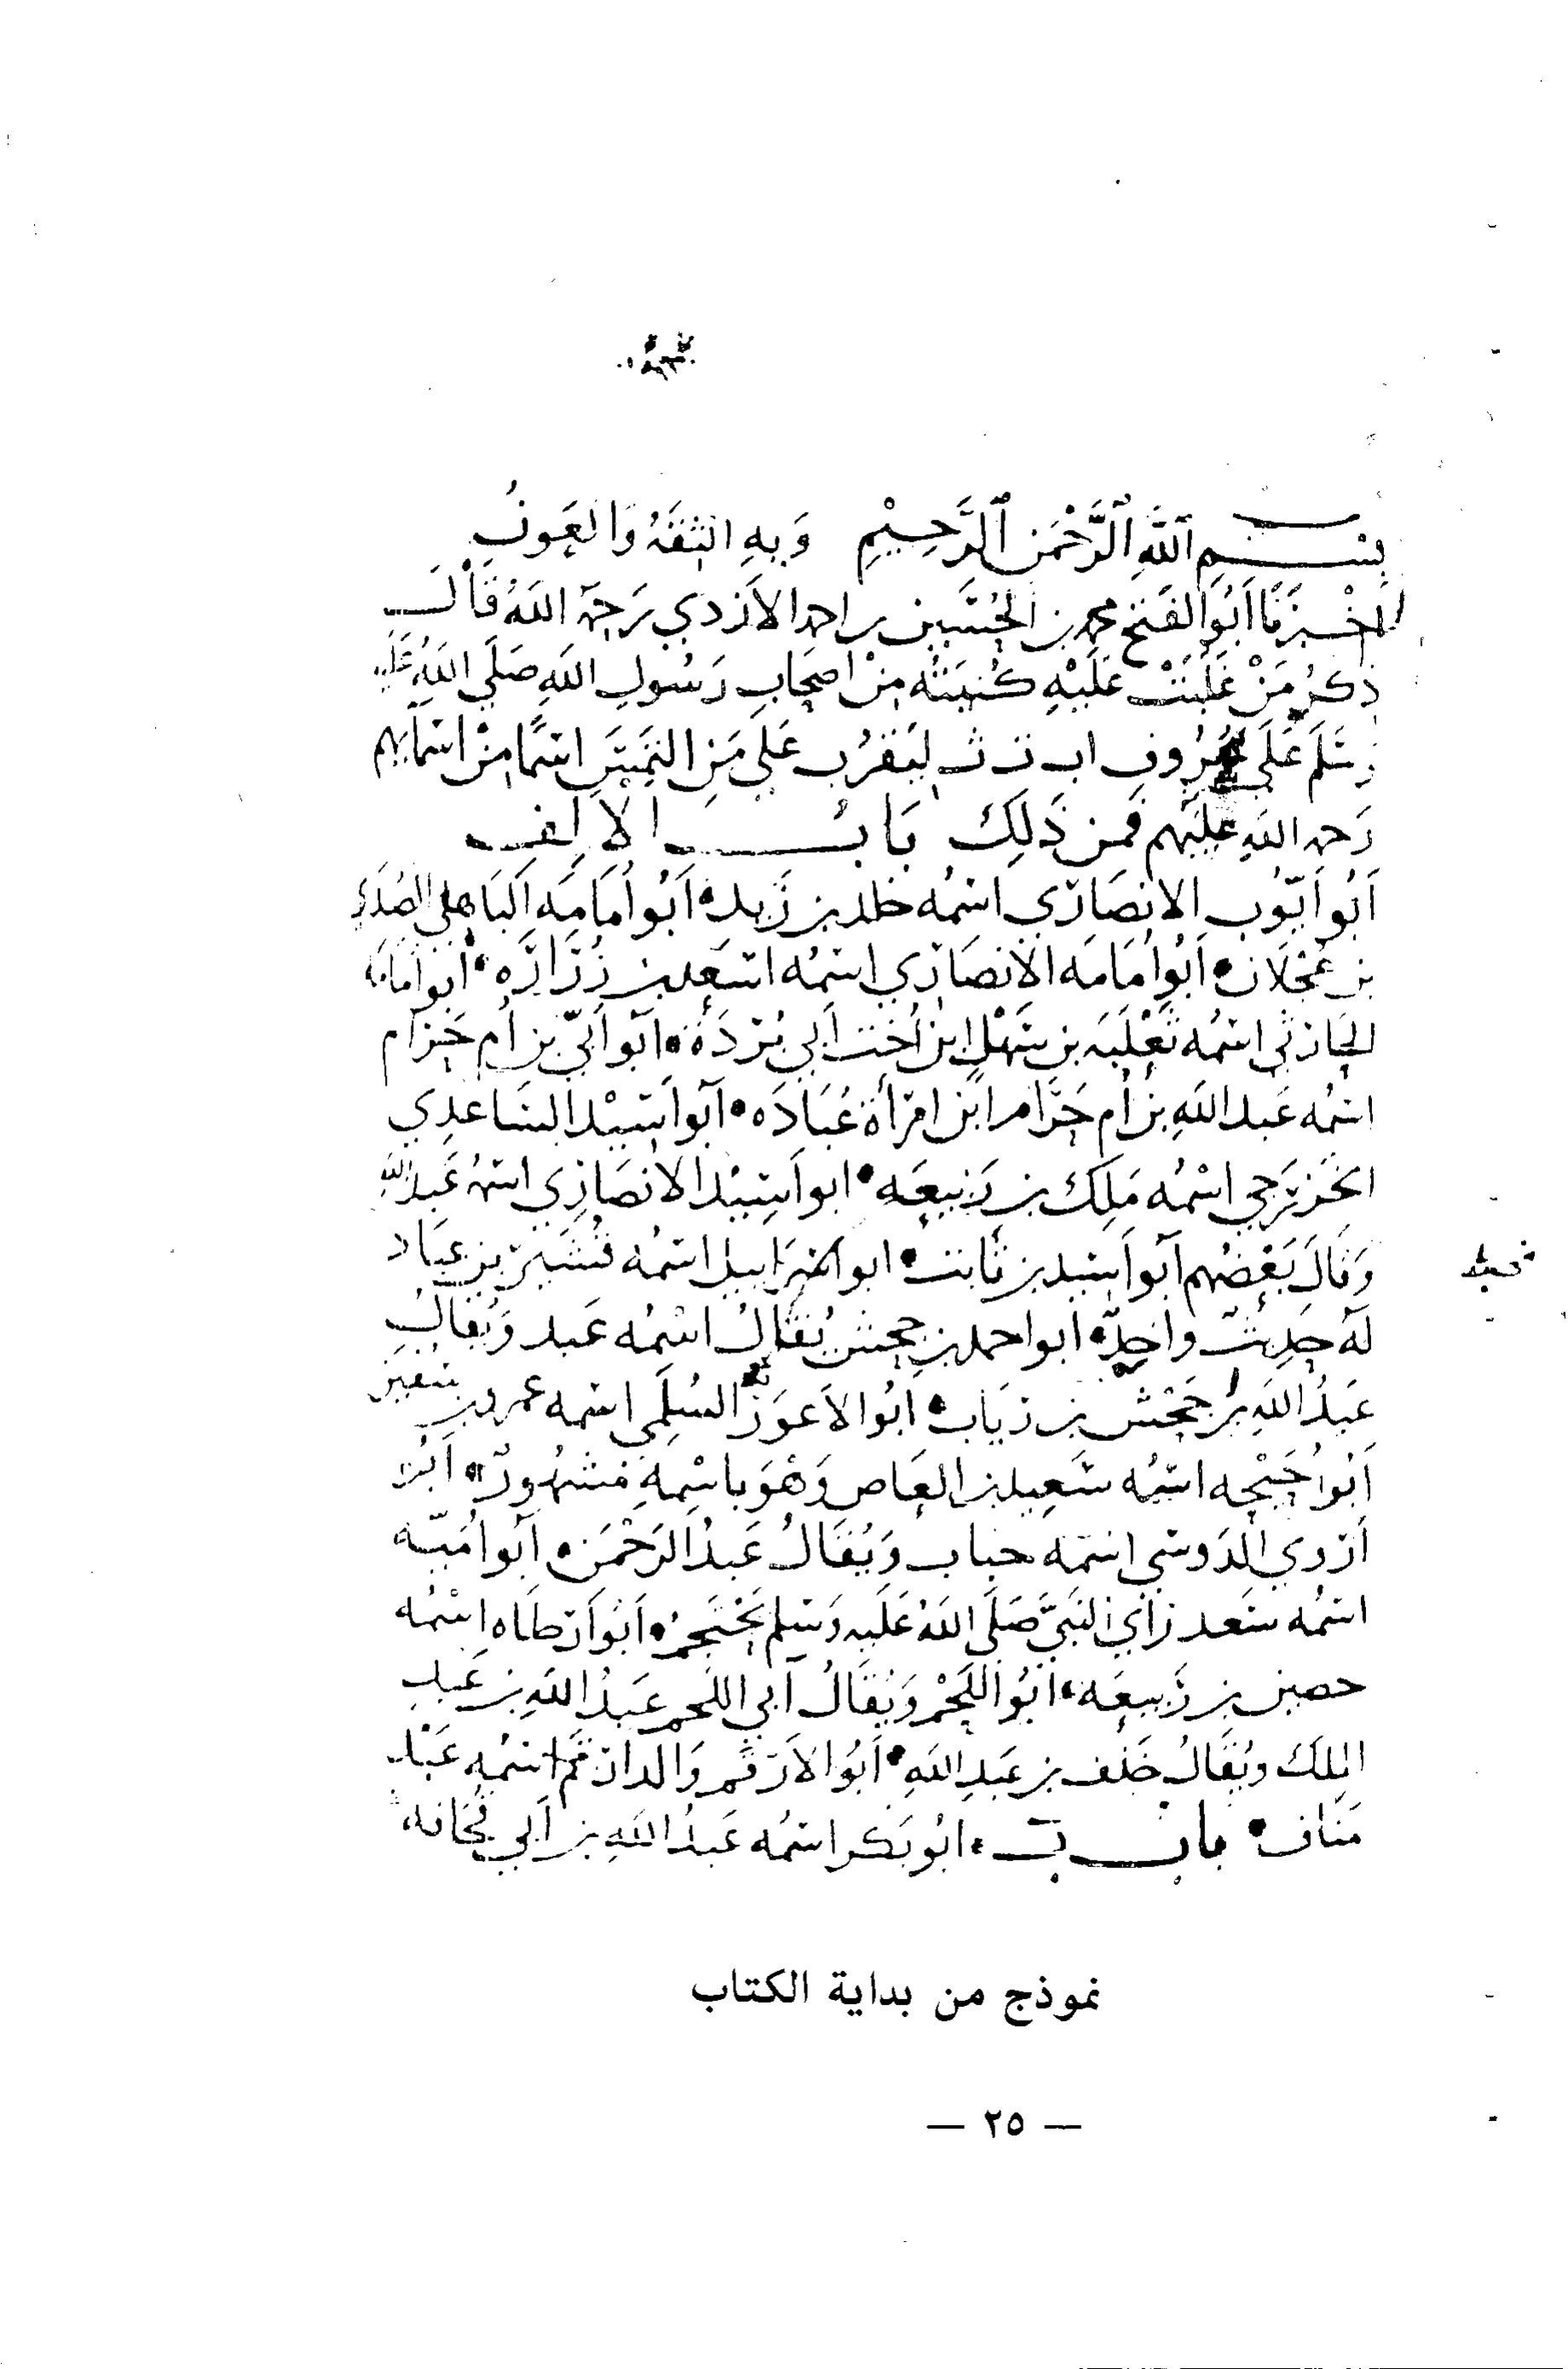 بسم الله الرحمن الرحيم وبه الثقة والعون
اخبرنا ابو الفتح محمد بن الحسين بن احمد الازدي رحمه الله قال
ذكر من غلبت عليه كنيته من اصحاب رسول الله صلى الله عليه
وسلم على حروف اب ت ث ليقرب على من التمس اسما من اسمايهم
رحمه الله عليهم فمن ذلك باب الالف
ابو ايوب الانصاري اسمه خلد بن زيد ابو امامه الباهلي الصدى
بن عجلان ابو امامه الانصاري اسمه اسعد بن زراره ابو امامه
الحارثي اسمه ثعلبه بن سهل ابن اخت ابي بردة ابو ابي بن ام حرام
اسمه عبد الله بن ام حرام ابن امرأة عباده ابو اسيد الساعدي
الخزرجي اسمه ملك بن ربيعه ابو اسيد الانصاري اسمه عبد الله
وقال بعضهم ابو اسيد بن ثابت ابو اسمه بن عباد
له حديث واحد ابو احمد بن جحش يقال اسمه عبد ويقال
عبد الله بن جحش بن رياب ابو الاعور السلمي اسمه عمرو بن سفين
ابو احيحه اسمه سعيد بن العاص وهو باسمه مشهور ابو
اروي الدوسي اسمه حباب ويقال عبد الرحمن ابو اميه
اسمه سعد راي النبي صلى الله عليه وسلم يحتجم ابو ارطاه اسمه
حصين بن ربيعه ابو اللحم ويقال آبي اللحم عبد الله بن عبد
الملك ويقال خلف بن عبد الله ابو الارقم والد ارقم اسمه عبد
مناف باب ب ابو بكر اسمه عبد الله بن ابي قحافه
نموذج من بداية الكتاب
— ٢٥ —